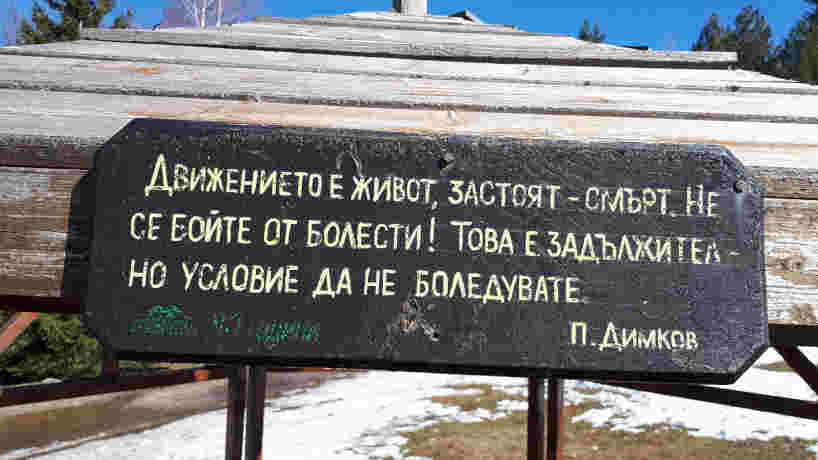 Движението е живот, застоят - смърт. Не
се бойте от болести! Това е задължител-
но условие да не боледувате
п. Димков